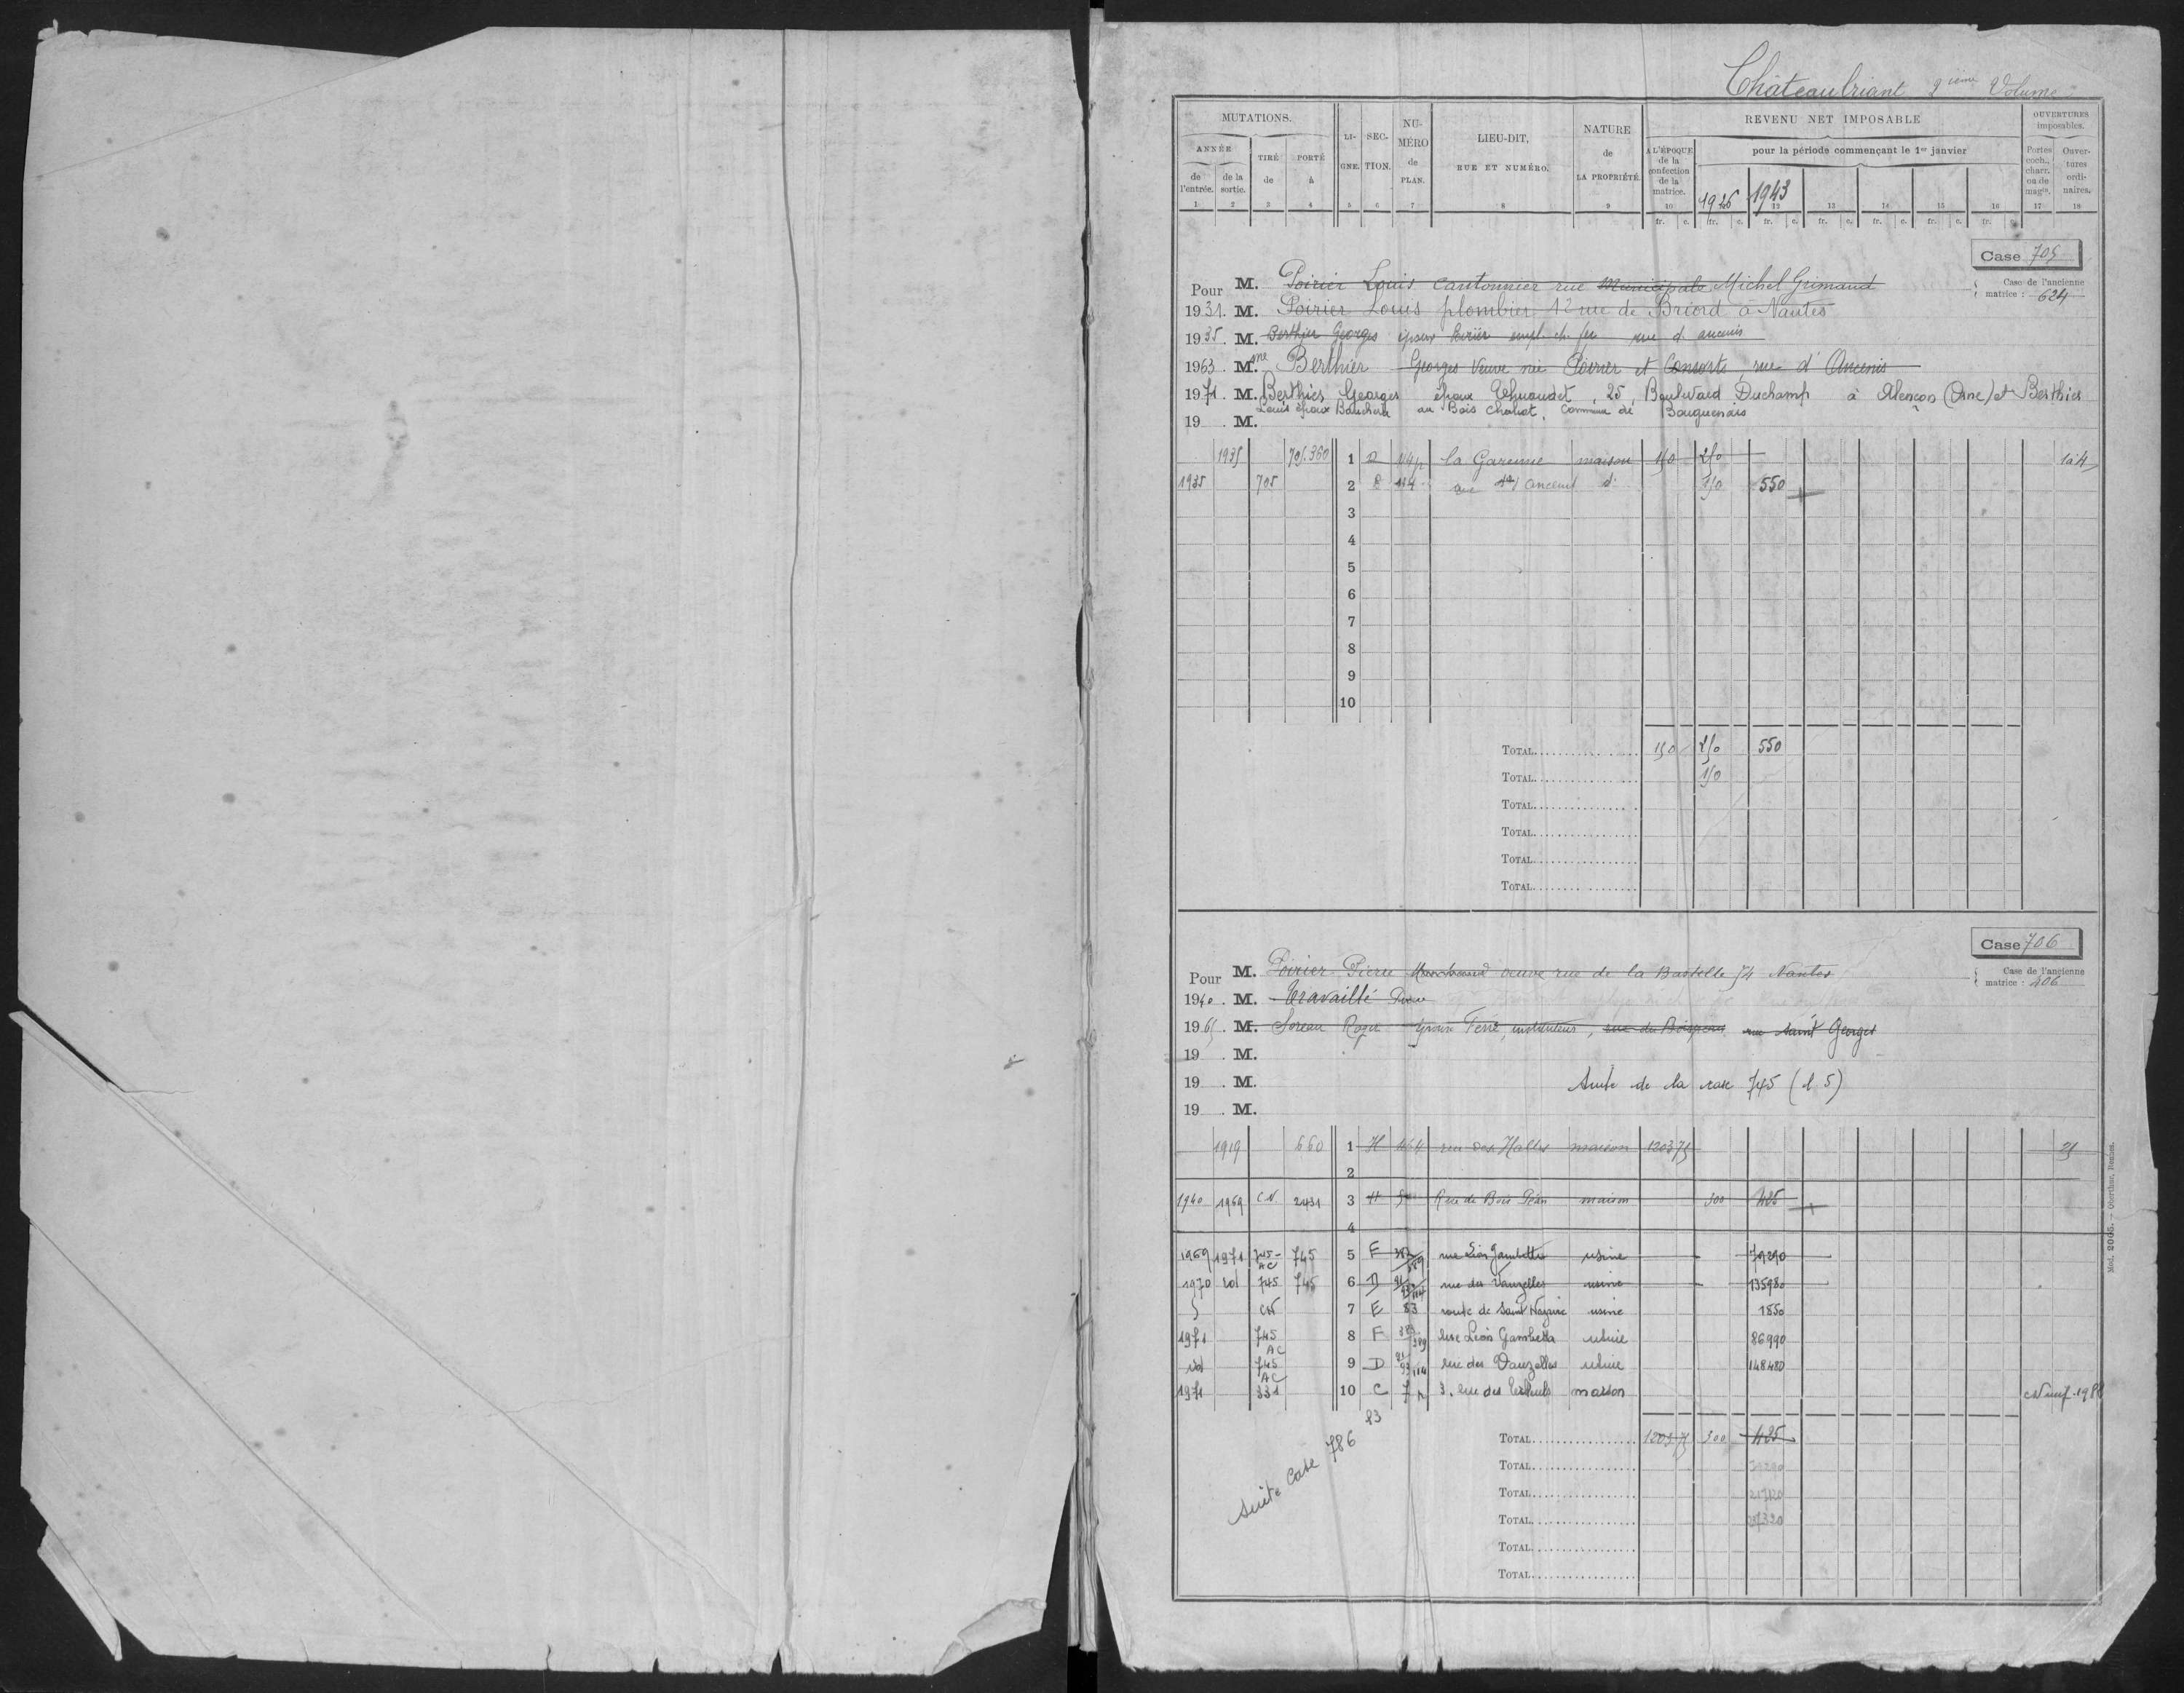 Châteaubriant 2ième Volume
MUTATIONS. LI- SEC- NU- LIEU-DIT, NATURE REVENU NET IMPOSABLE OUVERTURES
ANNÉE TIRÉ PORTÉ GNE. TION. MÉRO RUE ET NUMÉRO. de À L'ÉPOQUE pour la période commençant le 1er janvier imposables.
de l'entrée. de la sortie. de à de PLAN. LA PROPRIÉTÉ. de la confection de la matrice. 1926 1943 Portes coch., charr. ou de magins. Ouver-tures ordi-naires.
1 2 3 4 5 6 7 8 9 10 12 13 14 15 16 17 18
fr. c. fr. c. fr. c. fr. c. fr. c. fr. c. fr. c.
Case 705
Pour M. Poirier Louis cantonnier rue Municipale Michel Grimaud
Case de l'ancienne matrice : 624
1931. M. Poirier Louis plombier 12 rue de Briord à Nantes
1935. M. Berthier Georges époux Poirier empl. ch. fer rue d'ancenis
1963. Mme Berthier Georges Veuve née Poirier et Consorts, rue d'Ancenis
1971. M. Berthier Georges époux , 25, Boulevard Duchamp à Alençon (Orne) et Berthier
Louis époux au Bois Chabot, Commune de Bouguenais
19 . M.
1935 705.360 1 D 44p la Garenne maison 150 250 1à4
1935 705 2 E 134 rue d'ancenis d° 150 550
3
4
5
6
7
8
9
10
TOTAL 150 250 550
TOTAL 150
TOTAL
TOTAL
TOTAL
TOTAL
Case 706
Pour M. Poirier Pierre Marchand veuve rue de la Bastille 74 Nantes
Case de l'ancienne matrice : 406
1940. M. Travaillé Pierre
1965. M. Soreau Roger époux Ferré, instituteur, rue du Boispéan rue Saint Georges
19 . M.
19 . M. Suite de la case 745 (l 5)
19 . M.
1919 660 1 H 464 rue des Halles maison 1203 75 25
2
1940 1969 C.N. 2431 3 H Rue de Bois Péan maison 300 485
4
1969 1971 745 AC 745 5 F 383 389 rue Léon Gambetta usine 79290
1970 id 745 745 6 D rue des Vauzelles usine 135980
CN 7 E 83 route de Saint Nazaire usine 1850
1971 745 AC 8 F 383 389 rue Léon Gambetta usine 86990
id 745 AC 9 D 91 93 114 rue des Vauzelles usine 148480
1971 331 10 C 7p 3, rue des Tilleuls maison CNeuf-1988
83
Suite Case 786
TOTAL 1203 75 300 485
TOTAL 79290
TOTAL 217120
TOTAL 237320
TOTAL
TOTAL
Mod. 2065. — Oberthur, Rennes.